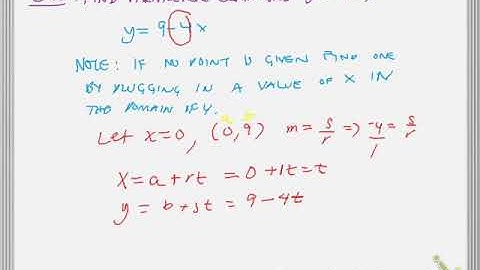 y = 9-4x
NOTE: IF NO POINT IS GIVEN FIND ONE
BY PLUGGING IN A VALUE OF X IN
THE DOMAIN OF Y.
a b
Let x=0, (0,9) m = s/r => -4/1 = s/r
X = a + rt = 0 + 1t = t
y = b + st = 9 - 4t